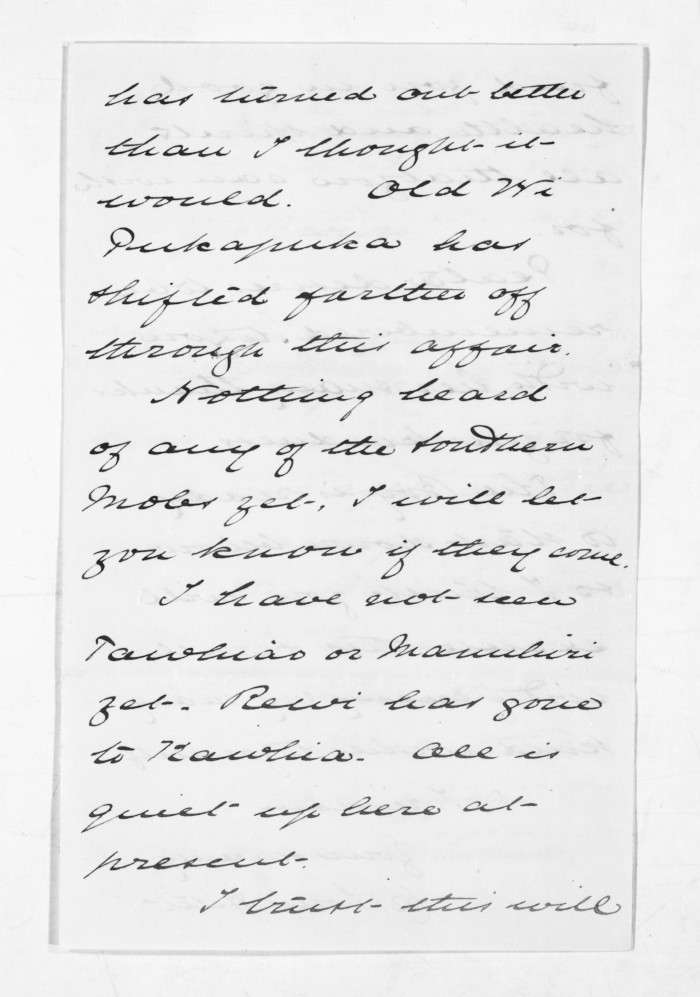 has turned out better
than I thought it
would. Old Wi
Pukapuka has
shifted farther off
through this affair.
Nothing heard
of any of the Southern
Mobs yet. I will let
you know if they come.
I have not seen
Tawhiao or Manuhiri
yet. Rewi has gone
to Kawhia. All is
quiet up here at
present.
I trust this will